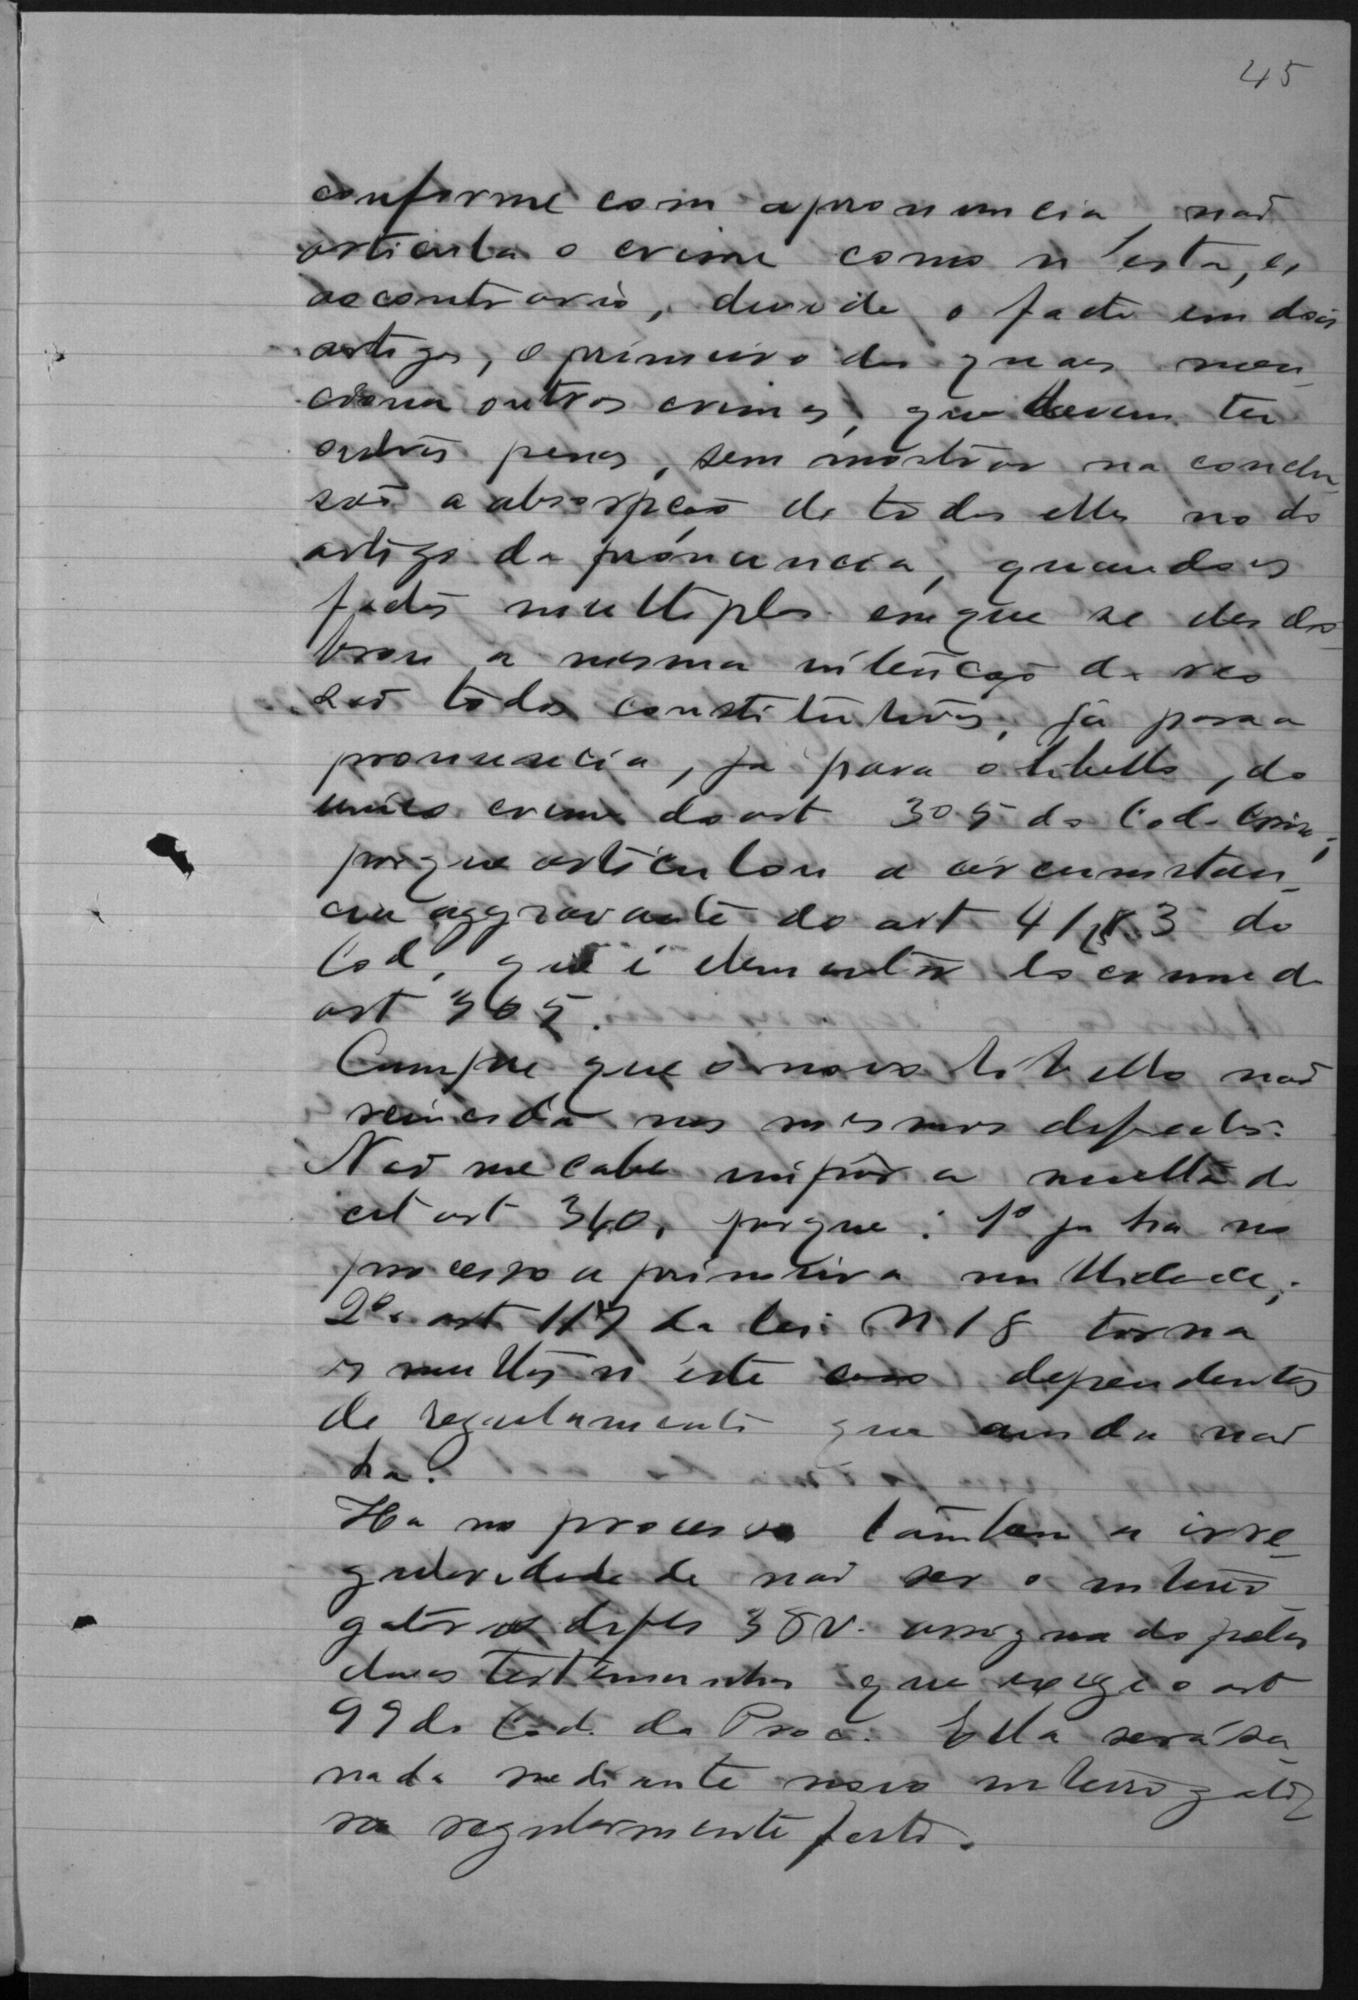 45
conforme com a pronuncia, não
articula o crime como n'esta, e,
ao contrario, devide o facto em dois
artigos, o primeiro dos quaes men-
ciona outros crimes, que devem ter
outras penas, sem mostrar na conclu-
são a absorpção de todos elles no do
artigo da pronuncia, quando os
factos multiplos em que se desdo-
brou a mesma intenção do reo
são todos constitutivos, já para a
pronuncia, já para o libello, do
unico crime do art 305 do Cod. Crim;
porque articulou a circumstan-
cia aggravante do art 41 § 3 do
Cod, que é elementar do crime do
art 305.
Cumpre que o novo libello não
reincida nos mesmos defeitos.
Não me cabe impôr a multa do
cit art 340, porque: 1º já ha no
processo a primeira nullidade;
2º o art 117 da lei N 18 torna
as multas n'este caso dependentes
de regulamento que ainda não
ha.
Ha no processo tambem a irre-
gularidade de não ser o interro
gatorio de fls 38v. assignado pelas
duas testemunhas que exige o art
99 do Cod. do Proc. Ella será sa-
nada mediante novo interrogato-
rio regularmente feito.